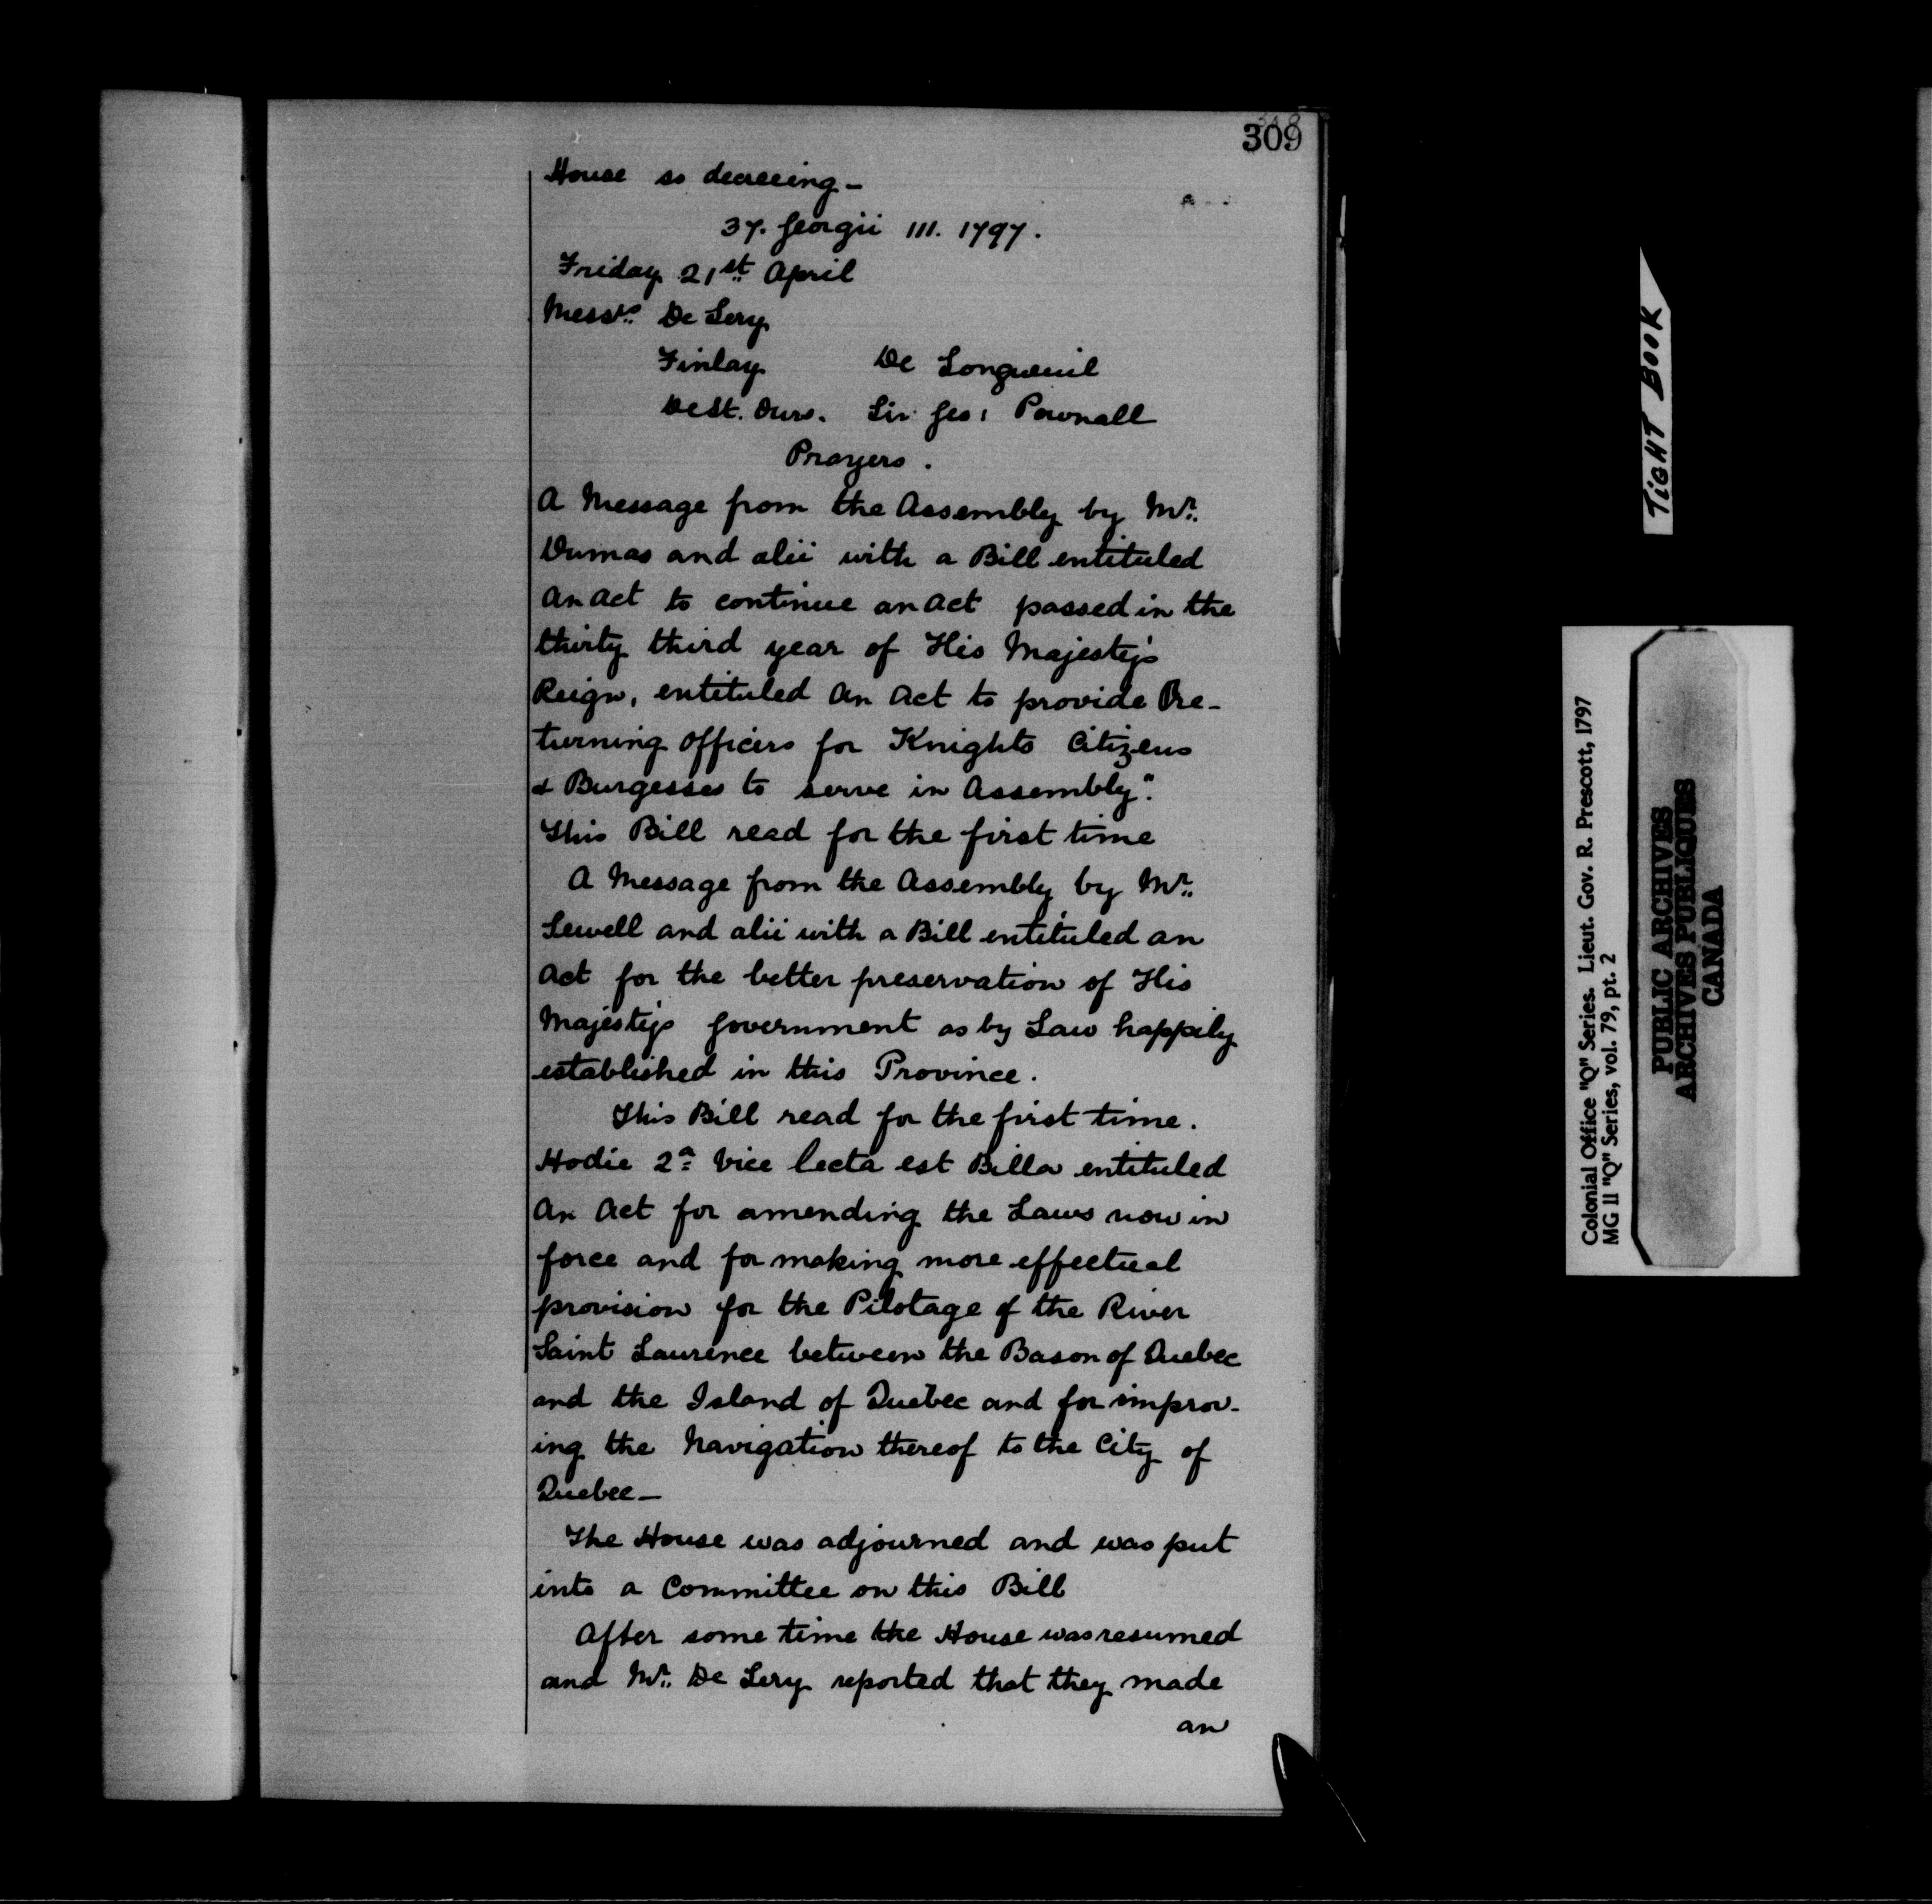 309
House so decreeing -
37. Georgii III. 1797.
Friday 21st April
Messrs. De Lery
Finlay De Longueuil
De St. Ours. Sir Geo: Pownall
Prayers.
A Message from the Assembly by Mr.
Dumas and alii with a Bill entituled
An Act to continue an Act passed in the
thirty third year of His Majesty's
Reign, entituled An Act to provide Re-
turning Officers for Knights Citizens
& Burgesses to serve in Assembly."
This Bill read for the first time
A Message from the Assembly by Mr.
Sewell and alii with a Bill entituled an
Act for the better preservation of His
Majesty's Government as by Law happily
established in this Province.
This Bill read for the first time.
Hodie 2a Vice lecta est Billa entituled
An Act for amending the Laws now in
force and for making more effectual
provision for the Pilotage of the River
Saint Laurence between the Bason of Quebec
and the Island of Quebec and for improv-
ing the Navigation thereof to the City of
Quebec -
The House was adjourned and was put
into a Committee on this Bill
After some time the House was resumed
and Mr. De Lery reported that they made
an
TIGHT BOOK
Colonial Office "Q" Series. Lieut. Gov. R. Prescott, 1797
MG 11 "Q" Series, vol. 79, pt. 2
PUBLIC ARCHIVES
ARCHIVES PUBLIQUES
CANADA